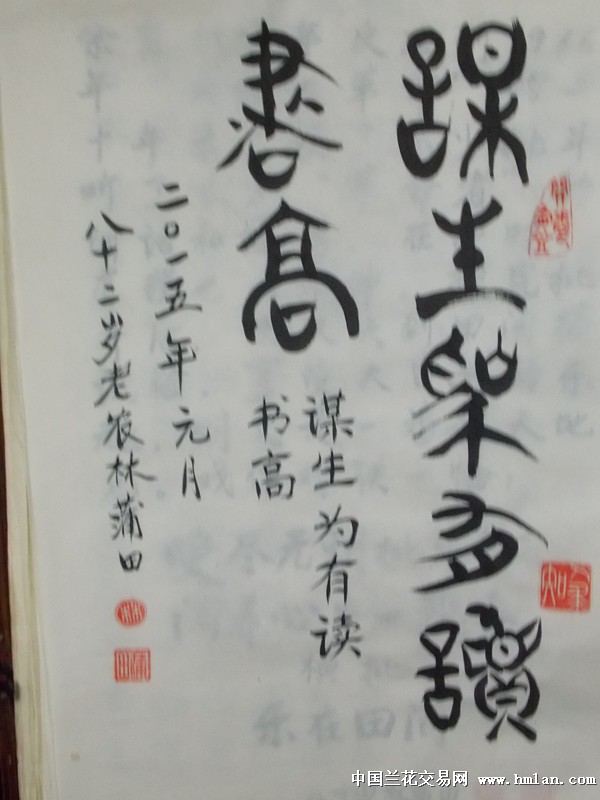 謀生為有讀
書高
谋生为有读
书高
二〇一五年元月
八十二岁老农林蒲田
中国兰花交易网 www.hmlan.com